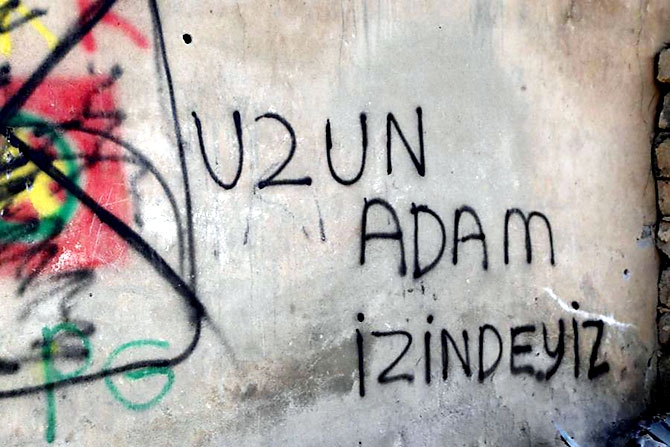 UZUN
ADAM
İZİNDEYİZ
PG